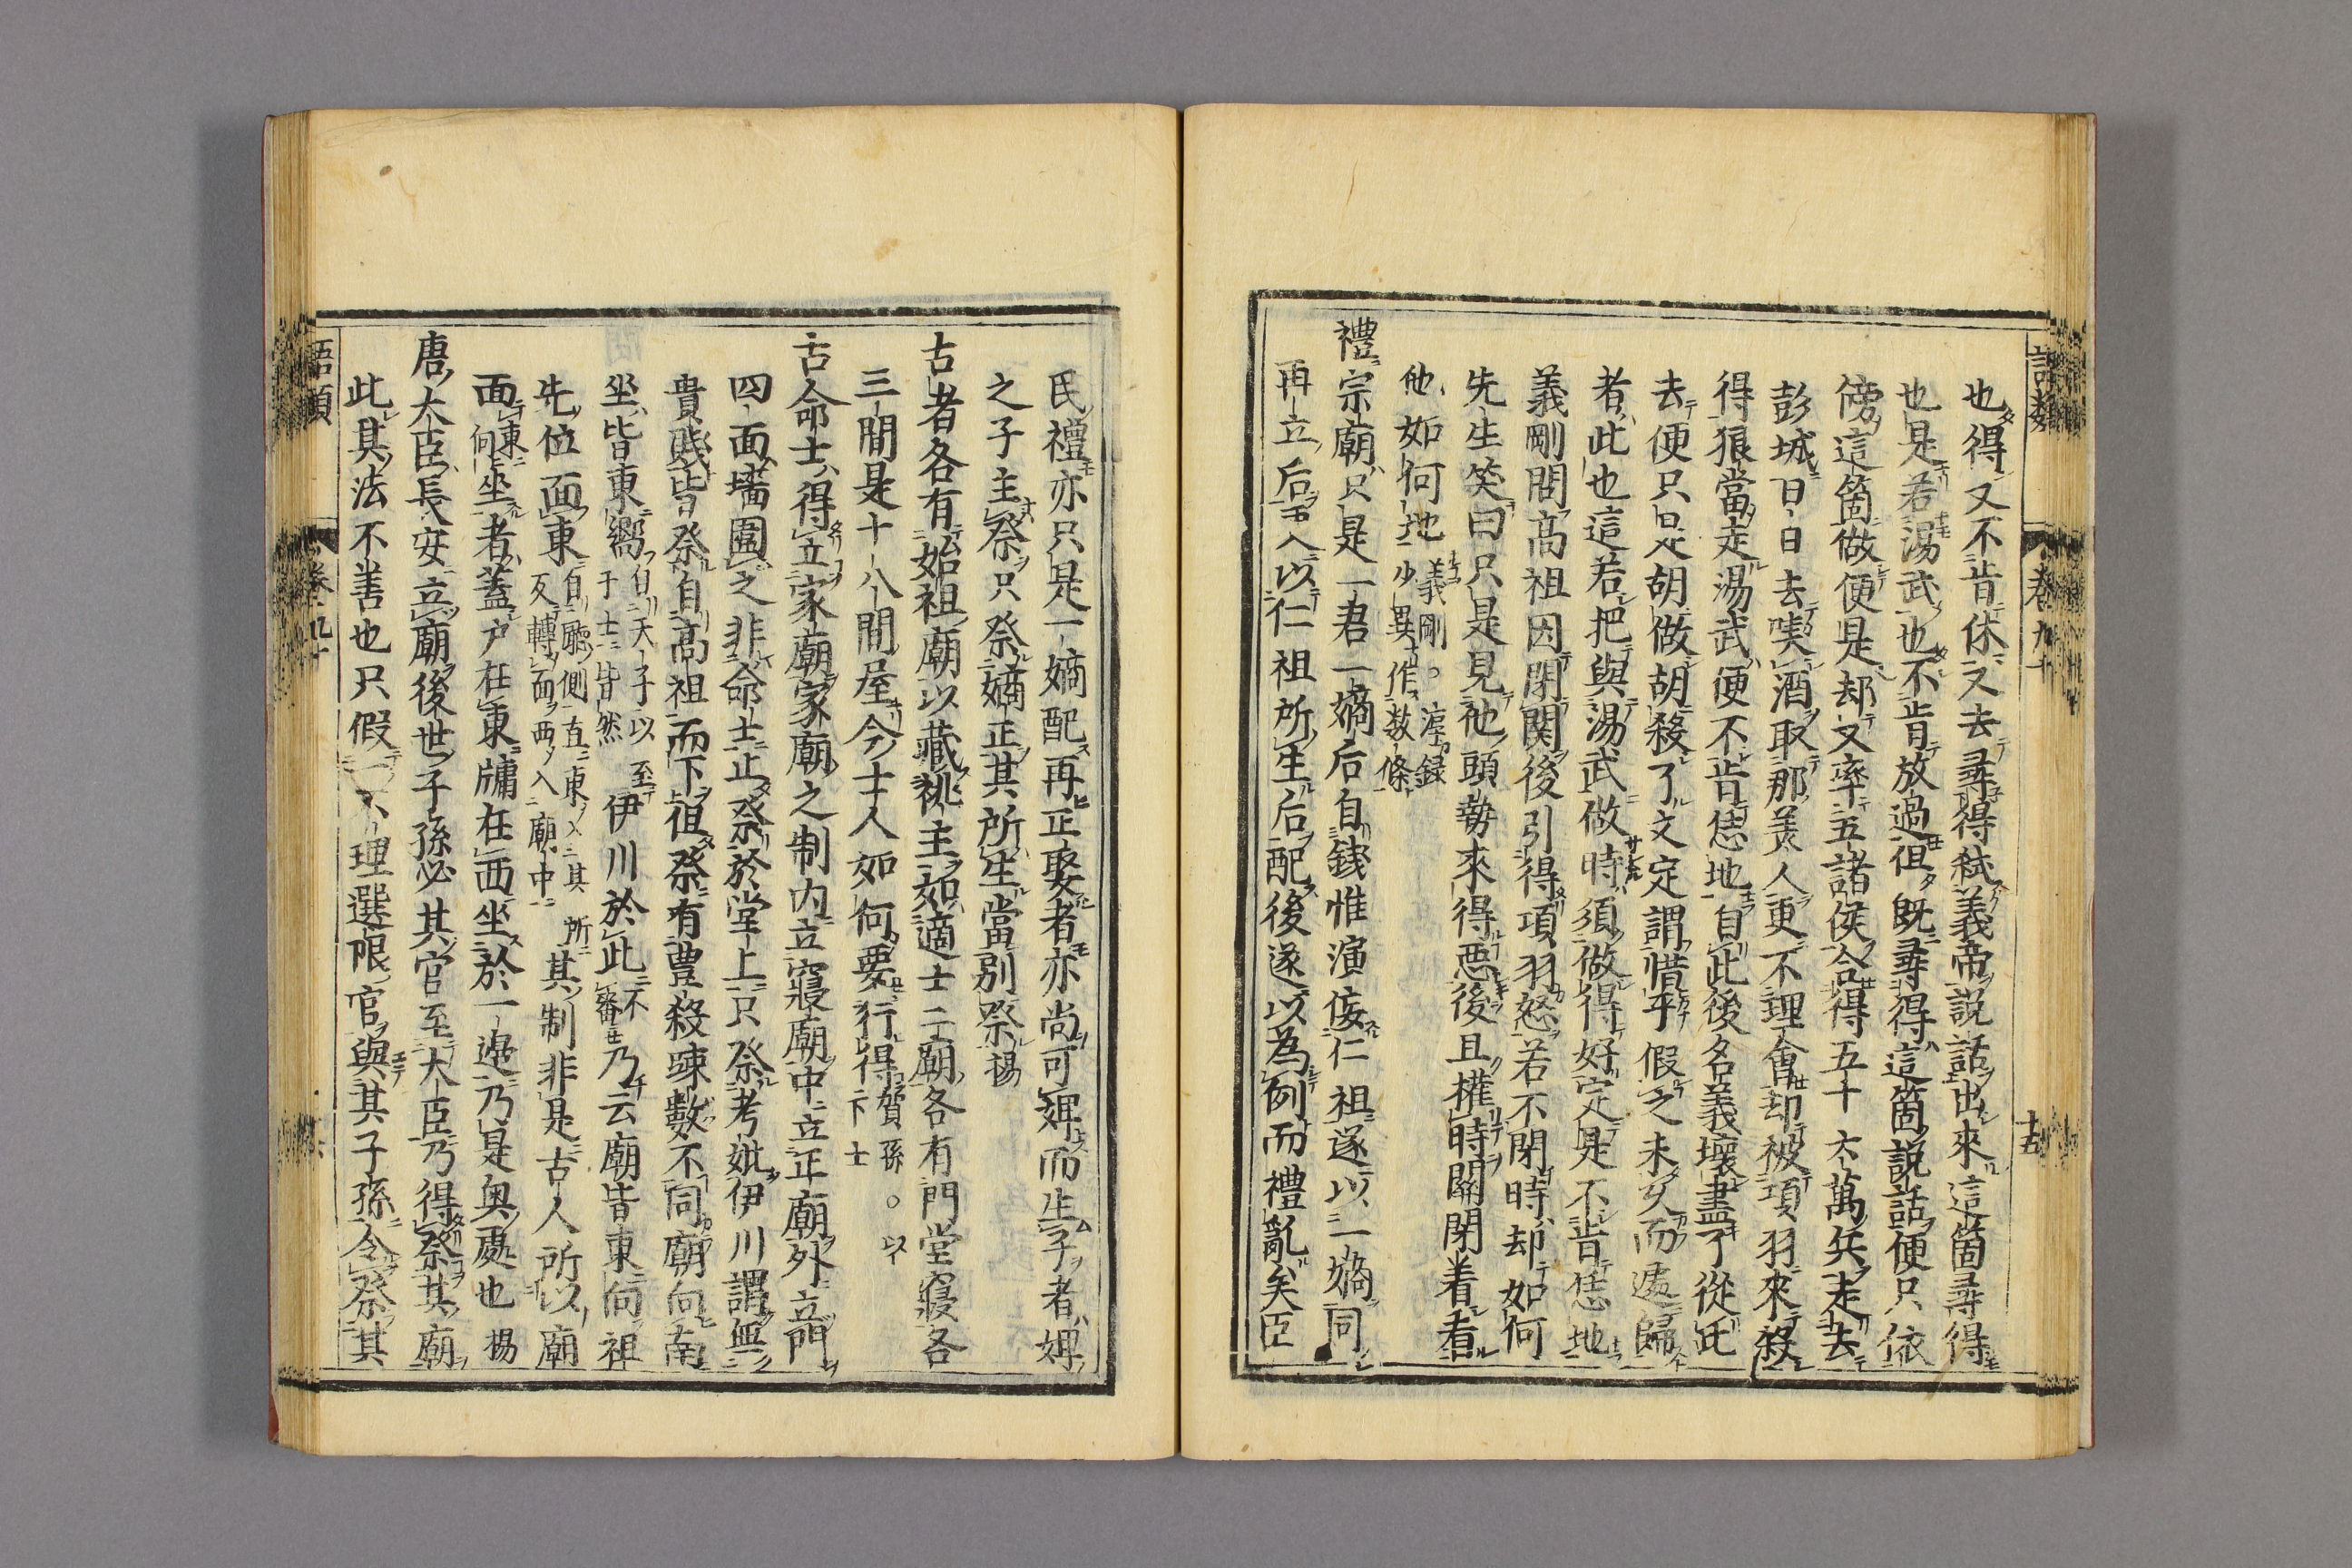 語類
卷九十
十五
也得又不肯休又去尋得弒義帝說話出來這箇尋得
也是若湯武也不肯放過但既尋得這箇說話便只依
傍這箇做便是却又率五諸侯合得五十六萬兵走去
彭城日日去喫酒取那美人更不理會却被項羽來殺
得狼當走湯武便不肯恁地自此後名義壞盡了從此
去便只是胡做胡殺了文定謂惜乎假之未久而遽歸
者此也這若把與湯武做時須做得好定是不肯恁地
義剛問高祖因閉關後引得項羽怒若不閉時却如何
先生笑曰只是見他頭勢來得惡後且權時關閉着看
他如何地義剛。淳錄
少異作數條
禮宗廟只是一君一嫡后自錢惟演佞仁祖遂以一嫡同
再立后配入以仁祖所生后配後遂以為例而禮亂矣臣
氏禮亦只是一嫡配再正娶者亦尚可婢而生子者婢
之子主祭只祭嫡正其所生當別祭楊
古者各有始祖廟以藏祧主如適士二廟各有門堂寢各
三間是十八間屋今士人如何要行得賀孫。以
下士
古命士得立家廟家廟之制内立寢廟中立正廟外立門
四面墻圍之非命士止祭於堂上只祭考妣伊川謂無
貴賤皆祭自高祖而下但祭有豊殺疎數不同廟向南
坐皆東嚮自天子以至
于士皆然伊川於此不
審乃云廟皆東向祖
先位面東自廳側直東入其所
反轉面西入廟中其制非是古人所以廟
面東向坐者蓋户在東牖在西坐於一邉乃是奥處也楊
唐大臣長安立廟後世子孫必其官至大臣乃得祭其廟
此其法不善也只假一不理選限官與其子孫令祭其
語類
卷九十